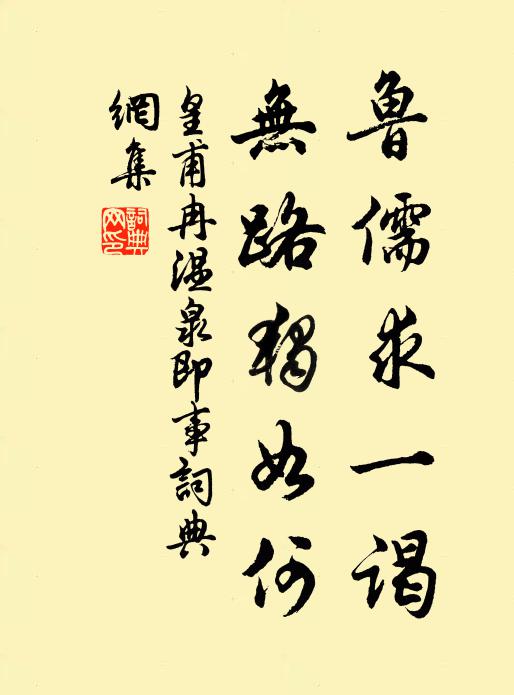 魯儒求一谒
無路獨如何
皇甫冉溫泉即事詞典
網集
詞典網印